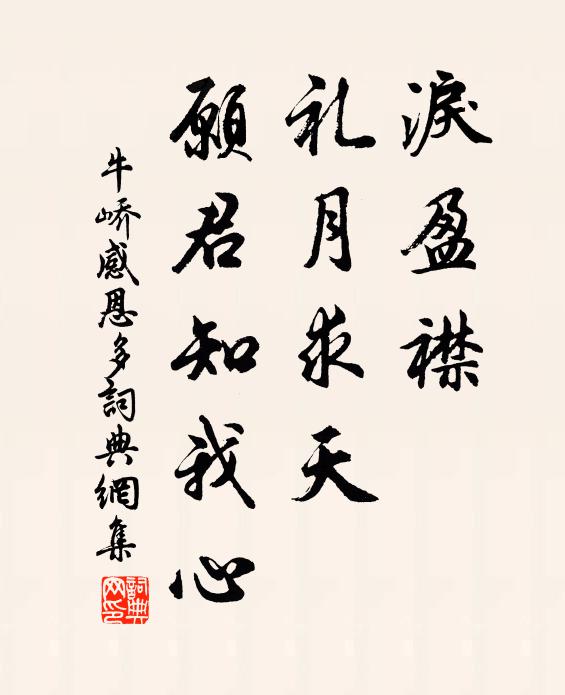 淚盈襟
礼月求天
願君知我心
牛嶠感恩多詞典網集
詞典网印